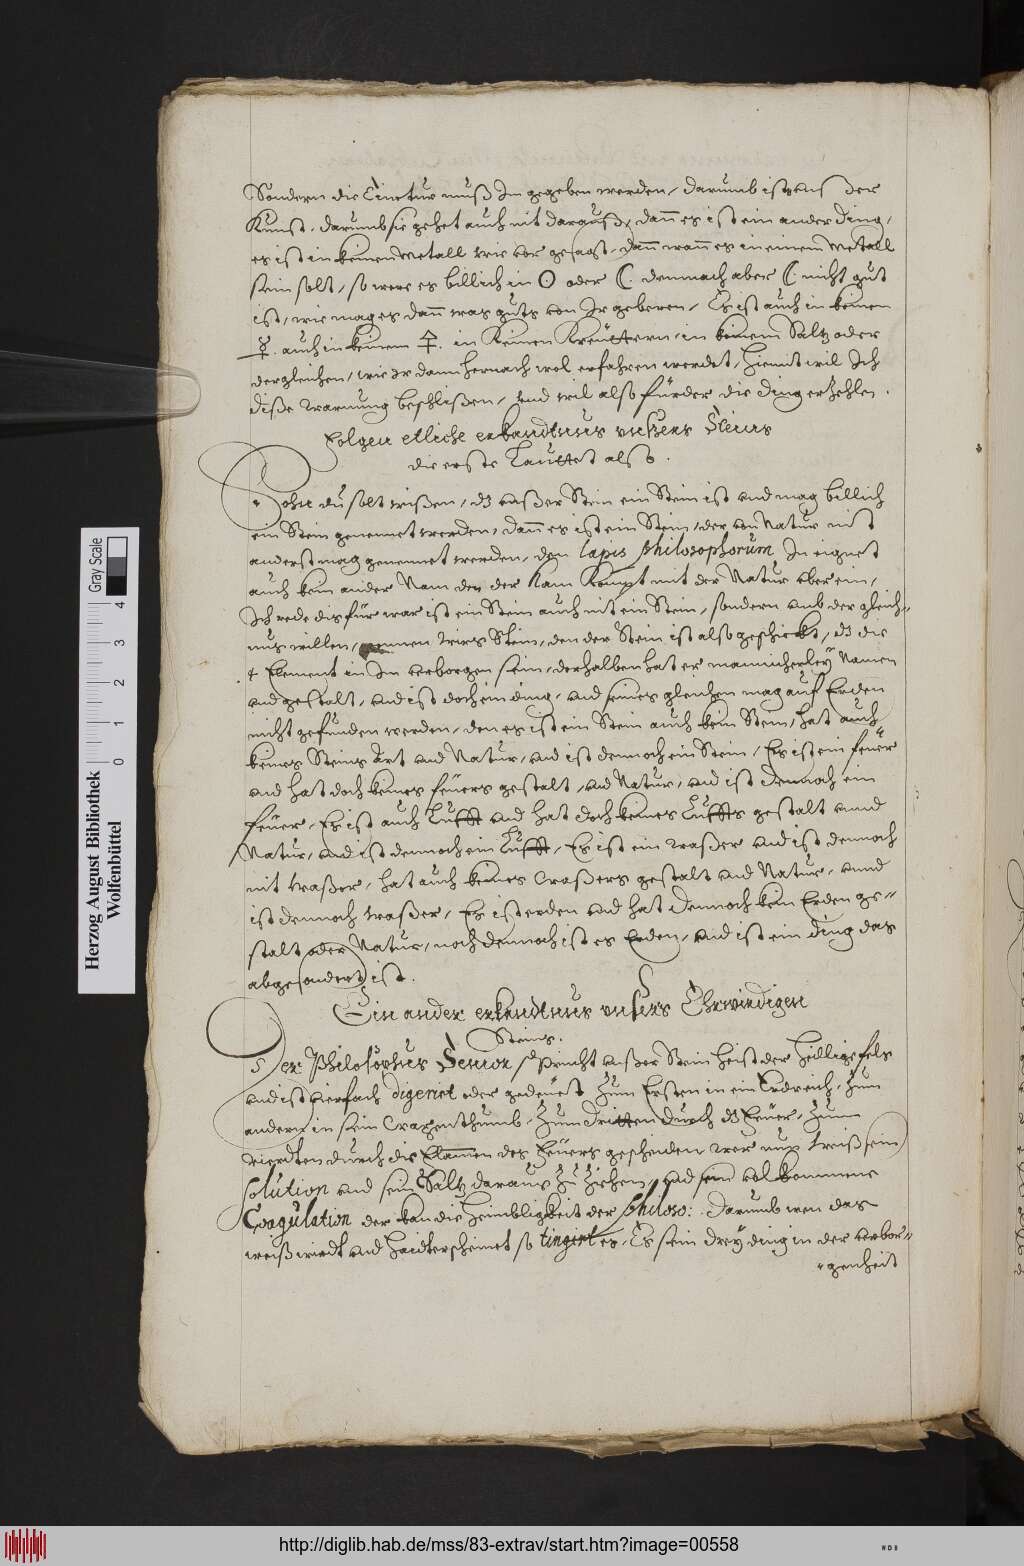 Sondern die Tinctur muß Im gegeben werden, darumb ist unßer
Kunst, darumb sie gehet auch nit darauß, dann es ist ein ander ding,
es ist in keinen Metall wie vor gesagt, dann wann es in einem Metall
sein solt, so were es billich in ☉ oder ☾ demnach aber ☾ nicht gut
ist, wie mag es dann was guts von Ir geberen, Es ist auch in keinen
☿. auch in keinem 🜍. in Keinen Kreuttern, in keinem Saltz oder
dergleichen, wie Ir dann hernach wol erfahren werdet, hiemit wil Ich
diße warnung beschlißen, und wil also fürder die ding erzehlen.
Folgen etliche erkandtnus unsers Steins
die erste lauttet also.
Sohn du solt wißen, dz unßer Stein ein Stein ist und mag billich
ein Stein genennet werden, dann es ist ein Stein, der von Natur nit
anderst mag genennet werden, den lapis philosophorum Im eignet
auch kein ander Nam den der Nam Kompt mit der Natur uber ein,
Ich rede dis für war ist ein Stein auch nit ein Stein, sondern umb der gleich-
nus willen, nennen wirs Stein, den der Stein ist also geschickt, dz die
4 Element in Im verborgen sein, derhalben hat er mannicherley Namen
und gestalt, und ist doch ein ding, und seines gleichen mag auf Erden
nicht gefunden werden, den es ist ein Stein auch kein Stein, hat auch
keines Steins Art und Natur, und ist dennoch ein Stein, Es ist ein feuer
und hat doch keines feuers gestalt, und Natur, und ist dennoch ein
feuer, Es ist auch Lufft und hat doch keines Luffts gestalt unnd
Natur, und ist dennoch ein Lufft, Es ist ein waßer und ist dennoch
nit waßer, hat auch keines Waßers gestalt und Natur, unnd
ist dennoch waßer, Es ist erden und hat dennoch kein Erden ge-
stalt oder Natur, noch dennoch ist es Erden, und ist ein ding das
abgesondert ist.
Ein ander erkandtnus unsers Ehrwirdigen
Steins.
Der Philosophus Senior spricht unßer Stein heist der heillige fels
und ist vierfach digerirt oder gedeuet zum Ersten in ein Erdreich, zum
andern in sein Waßerthumb, Zum dritten durch dz Feuer, Zum
vierdten durch die Flamen des Feuers geschieden wer nun weiß sein
solution und sein Saltz daraus zu zihen, und sein volkommene
Coagulation der kan die heimbligkeit der philoso: Darumb wen das
weiß wirdt und zaidt erscheinet so tingirt es, Es sein drey ding in der verbor-
genheit
Herzog August Bibliothek
Wolfenbüttel
0 1 2 3 4
Gray Scale
http://diglib.hab.de/mss/83-extrav/start.htm?image=00558